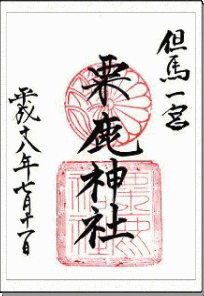 但馬一宮
粟鹿神社
平成十八年七月十一日